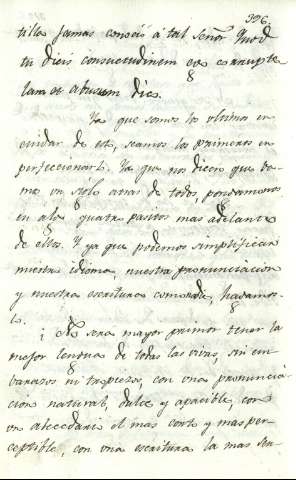 396.
tilla jamas conocio à tal señor. Quod
tu dicis consuetudinem ego corrupte
lam et abusum dico.
Ya que somos los ultimos en
cuidar de esto, seamos los primeros en
perfeccionarlo. Ya que nos dicen que va
mos un siglo atras de todos, pongamonos
en algo quatro pasitos mas adelante
de ellos. Y ya que podemos simplificar
nuestro idioma, nuestra pronunciacion
y nuestra escritura comoda, hagamos
lo.
¿No sera mayor primor tener la
mejor lengua de todas las vivas, sin em
barazos ni tropiezos, con una pronuncia
cion natural, dulce y apacible, con
un abecedario el mas corto y mas per
ceptible, con una escritura la mas sen